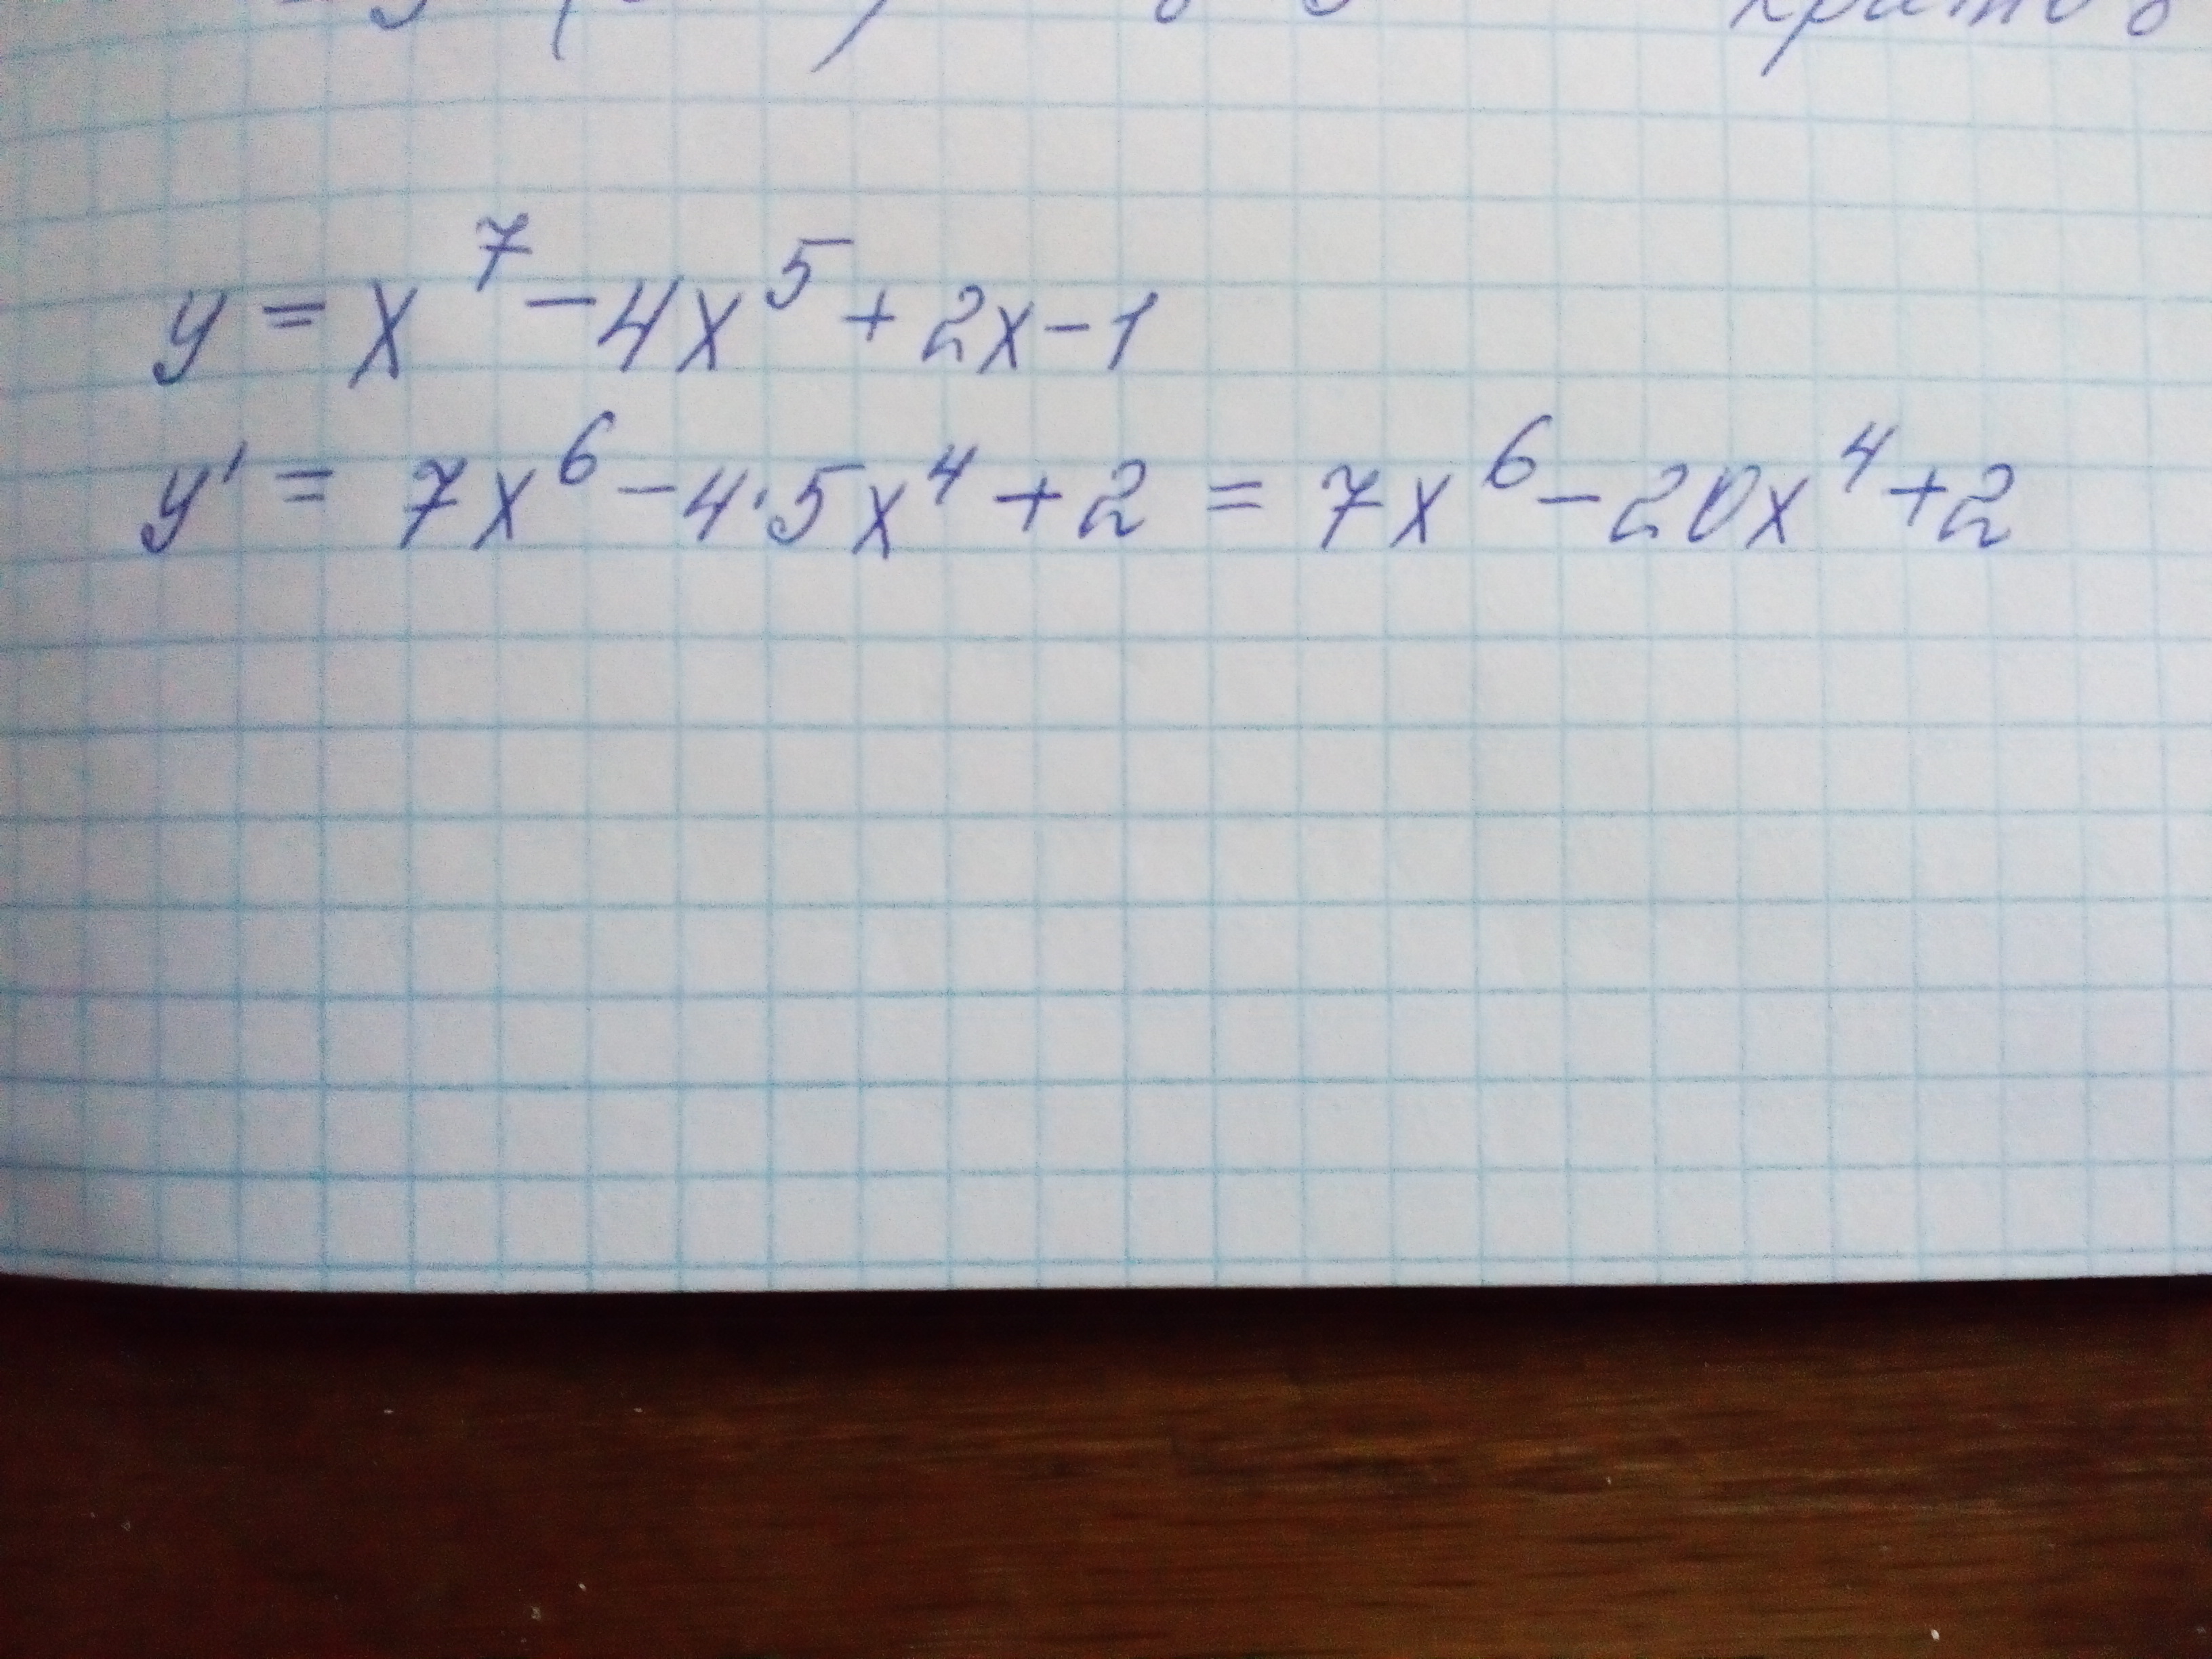 y = x⁷ - 4x⁵ + 2x - 1
y' = 7x⁶ - 4·5x⁴ + 2 = 7x⁶ - 20x⁴ + 2